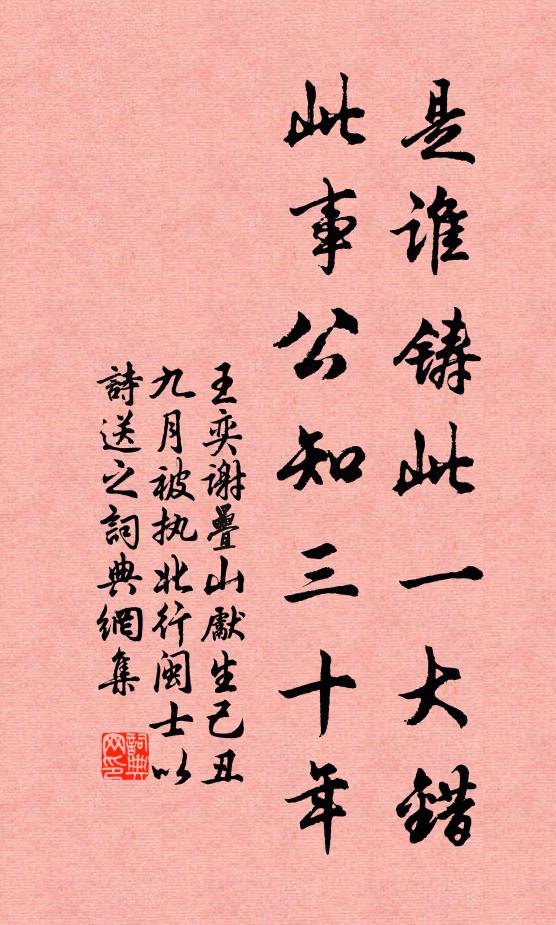 是谁鑄此一大錯
此事公知三十年
王奕谢疊山獻生己丑
九月被执北行闽士以
詩送之詞典網集
詞典
网印